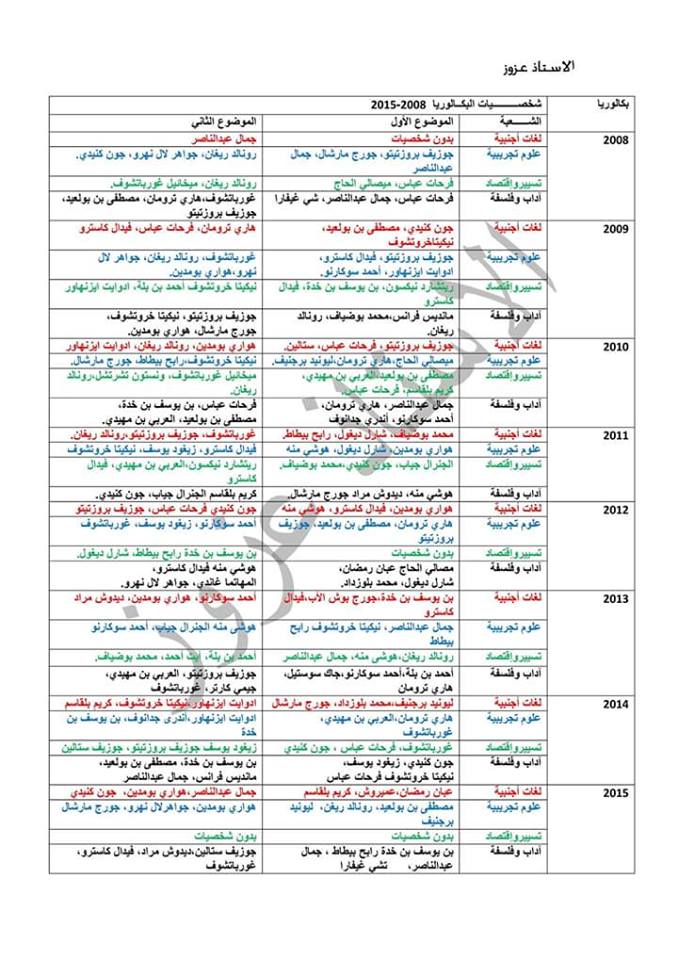 الاستاذ عزوز
بكالوريا شخصـــــــيات البكــالوريا 2008-2015
الشــــعبة الموضوع الأول الموضوع الثاني
2008 لغات أجنبية بدون شخصيات جمال عبدالناصر
علوم تجريبية جوزيف بروزتيتو، جورج مارشال، جمال رونالد ريغان، جواهر لال نهرو، جون كنيدي.
عبدالناصر
تسييرواقتصاد فرحات عباس، ميصالي الحاج رونالد ريغان، ميخائيل غورباتشوف.
آداب وفلسفة فرحات عباس، جمال عبدالناصر، شي غيفارا غورباتشوف،هاري ترومان، مصطفى بن بولعيد،
جوزيف بروزتيتو
2009 لغات أجنبية جون كنيدي، مصطفى بن بولعيد، هاري ترومان، فرحات عباس، فيدال كاسترو
نيكيتاخروتشوف
علوم تجريبية جوزيف بروزتيتو، فيدال كاسترو، غورباتشوف، رونالد ريغان، جواهر لال
ادوايت ايزنهاور، أحمد سوكارنو. نهرو،هواري بومدين.
تسييرواقتصاد ريتشارد نيكسون، بن يوسف بن خدة، فيدال نيكيتا خروتشوف أحمد بن بلة، ادوايت ايزنهاور
كاسترو
آداب وفلسفة مانديس فرانس،محمد بوضياف، رونالد جوزيف بروزتيتو، نيكيتا خروتشوف،
ريغان. جورج مارشال، هواري بومدين.
2010 لغات أجنبية جوزيف بروزتيتو، فرحات عباس، ستالين. هواري بومدين، رونالد ريغان، ادوايت ايزنهاور
علوم تجريبية ميصالي الحاج،هاري ترومان،ليونيد برجنيف. نيكيتا خروتشوف،رابح بيطاط، جورج مارشال.
تسييرواقتصاد مصطفى بن بولعيد،العربي بن مهيدي، ميخائيل غورباتشوف، ونستون تشرتشل،رونالد
كريم بلقاسم، فرحات عباس. ريغان.
آداب وفلسفة جمال عبدالناصر، هاري ترومان، فرحات عباس، بن يوسف بن خدة،
أحمد سوكارنو، أندري جدانوف مصطفى بن بولعيد، العربي بن مهيدي.
2011 لغات أجنبية محمد بوضياف، شارل ديغول، رابح بيطاط. غورباتشوف، جوزيف بروزتيتو،رونالد ريغان.
علوم تجريبية هواري بومدين، شارل ديغول، هوشي منه فيدال كاسترو، زيغود يوسف، نيكيتا خروتشوف
تسييرواقتصاد الجنرال جياب، جون كنيدي،محمد بوضياف. ريتشارد نيكسون،العربي بن مهيدي، فيدال
كاسترو
آداب وفلسفة هوشي منه، ديدوش مراد جورج مارشال. كريم بلقاسم الجنرال جياب، جون كنيدي.
2012 لغات أجنبية هواري بومدين، فيدال كاسترو، هوشي منه جون كنيدي فرحات عباس، جوزيف بروزتيتو
علوم تجريبية هاري ترومان، مصطفى بن بولعيد، جوزيف أحمد سوكارنو، زيغود يوسف، غورباتشوف
بروزتيتو
تسييرواقتصاد بدون شخصيات بن يوسف بن خدة رابح بيطاط، شارل ديغول.
آداب وفلسفة مصالي الحاج عبان رمضان، هوشي منه فيدال كاسترو،
شارل ديغول، محمد بلوزداد. المهاتما غاندي، جواهر لال نهرو.
2013 لغات أجنبية بن يوسف بن خدة،جورج بوش الأب،فيدال أحمد سوكارنو، هواري بومدين، ديدوش مراد
كاسترو
علوم تجريبية جمال عبدالناصر، نيكيتا خروتشوف رابح هوشي منه الجنرال جياب، أحمد سوكارنو
بيطاط
تسييرواقتصاد رونالد ريغان،هوشي منه، جمال عبدالناصر أحمد بن بلة، آيت أحمد، محمد بوضياف.
آداب وفلسفة أحمد بن بلة،أحمد سوكارنو،جاك سوستيل، جوزيف بروزتيتو، العربي بن مهيدي،
هاري ترومان جيمي كارتر، غورباتشوف
2014 لغات أجنبية ليونيد برجنيف،محمد بلوزداد، جورج مارشال ادوايت ايزنهاور،نيكيتا خروتشوف، كريم بلقاسم
علوم تجريبية هاري ترومان،العربي بن مهيدي، ادوايت ايزنهاور،أندرى جدانوف، بن يوسف بن
غورباتشوف خدة
تسييرواقتصاد غورباتشوف، فرحات عباس ، جون كنيدي زيغود يوسف جوزيف بروزتيتو، جوزيف ستالين
آداب وفلسفة جون كنيدي، زيغود يوسف، بن يوسف بن خدة، مصطفى بن بولعيد،
نيكيتا خروتشوف فرحات عباس مانديس فرانس، جمال عبدالناصر
2015 لغات أجنبية عبان رمضان،عميروش، كريم بلقاسم جمال عبدالناصر،هواري بومدين، جون كنيدي
علوم تجريبية مصطفى بن بولعيد، رونالد ريغن، ليونيد هواري بومدين، جواهرلال نهرو، جورج مارشال
برجنيف
تسييرواقتصاد بدون شخصيات بدون شخصيات
آداب وفلسفة بن يوسف بن خدة رابح بيطاط ، جمال جوزيف ستالين،ديدوش مراد، فيدال كاسترو،
عبدالناصر، تشي غيفارا غورباتشوف
الاستاذ عزوز